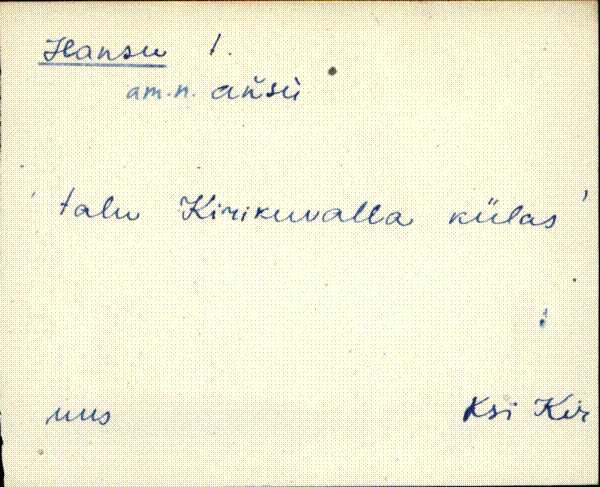 Hansu 1.
am.n. ańsù
' talu Kirikuvalla külas '
uus Ksi Kir